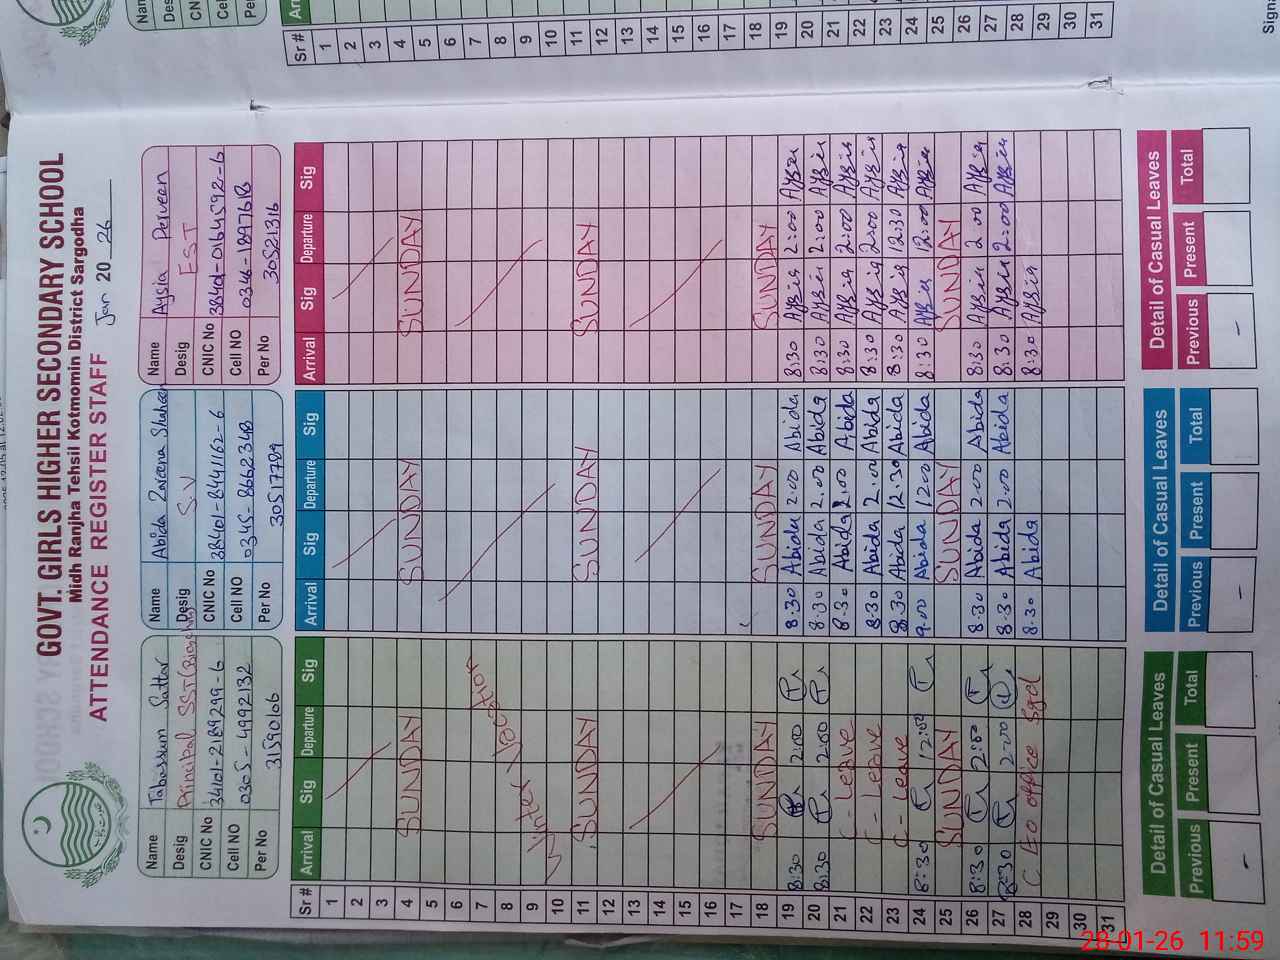 GOVT. GIRLS HIGHER SECONDARY SCHOOL
Midh Ranjha Tehsil Kotmomin District Sargodha
ATTENDANCE REGISTER STAFF Jan 2026
Name Tabassum Sattar
Desig Principal SST(
CNIC No 34101-2189299-6
Cell NO 0305-4992132
Per No 31590166
Name Abida Zareena Shaheen
Desig S.V
CNIC No 38401-8441162-6
Cell NO 0345-8662348
Per No 30517789
Name Aysia Perveen
Desig EST
CNIC No 38401-0164592-6
Cell NO 0346-1897618
Per No 30521316
Sr # Arrival Sig Departure Sig Arrival Sig Departure Sig Arrival Sig Departure Sig
1
2
3
4 SUNDAY SUNDAY SUNDAY
5
6
7
8
9
10
Winter Vacation
11 SUNDAY SUNDAY SUNDAY
12
13
14
15
16
17
18 SUNDAY SUNDAY SUNDAY
19 8:30 2:00 8:30 Abida 2:00 Abida 8:30 Aysia 2:00 Aysia
20 8:30 2:00 8:30 Abida 2.00 Abida 8:30 Aysia 2:00 Aysia
21 C-Leave 8:30 Abida 2.00 Abida 8:30 Aysia 2:00 Aysia
22 C-Leave 8:30 Abida 2.00 Abida 8:30 Aysia 2:00 Aysia
23 C-leave 8:30 Abida 12.30 Abida 8:30 Aysia 12:30 Aysia
24 8:30 12:00 9.00 Abida 1200 Abida 8:30 Aysia 12:00 Aysia
25 SUNDAY SUNDAY SUNDAY
26 8:30 2:00 8.30 Abida 2.00 Abida 8:30 Aysia 2:00 Aysia
27 8:30 2:00 8.30 Abida 2.00 Abida 8:30 Aysia 2:00 Aysia
28 CEO office Sgd 8.30 Abida 8:30 Aysia
29
30
31
Detail of Casual Leaves Detail of Casual Leaves Detail of Casual Leaves
Previous Present Total Previous Present Total Previous Present Total
- - -
Sr #
1
2
3
4
5
6
7
8
9
10
11
12
13
14
15
16
17
18
19
20
21
22
23
24
25
26
27
28
29
30
31
28-01-26 11:59